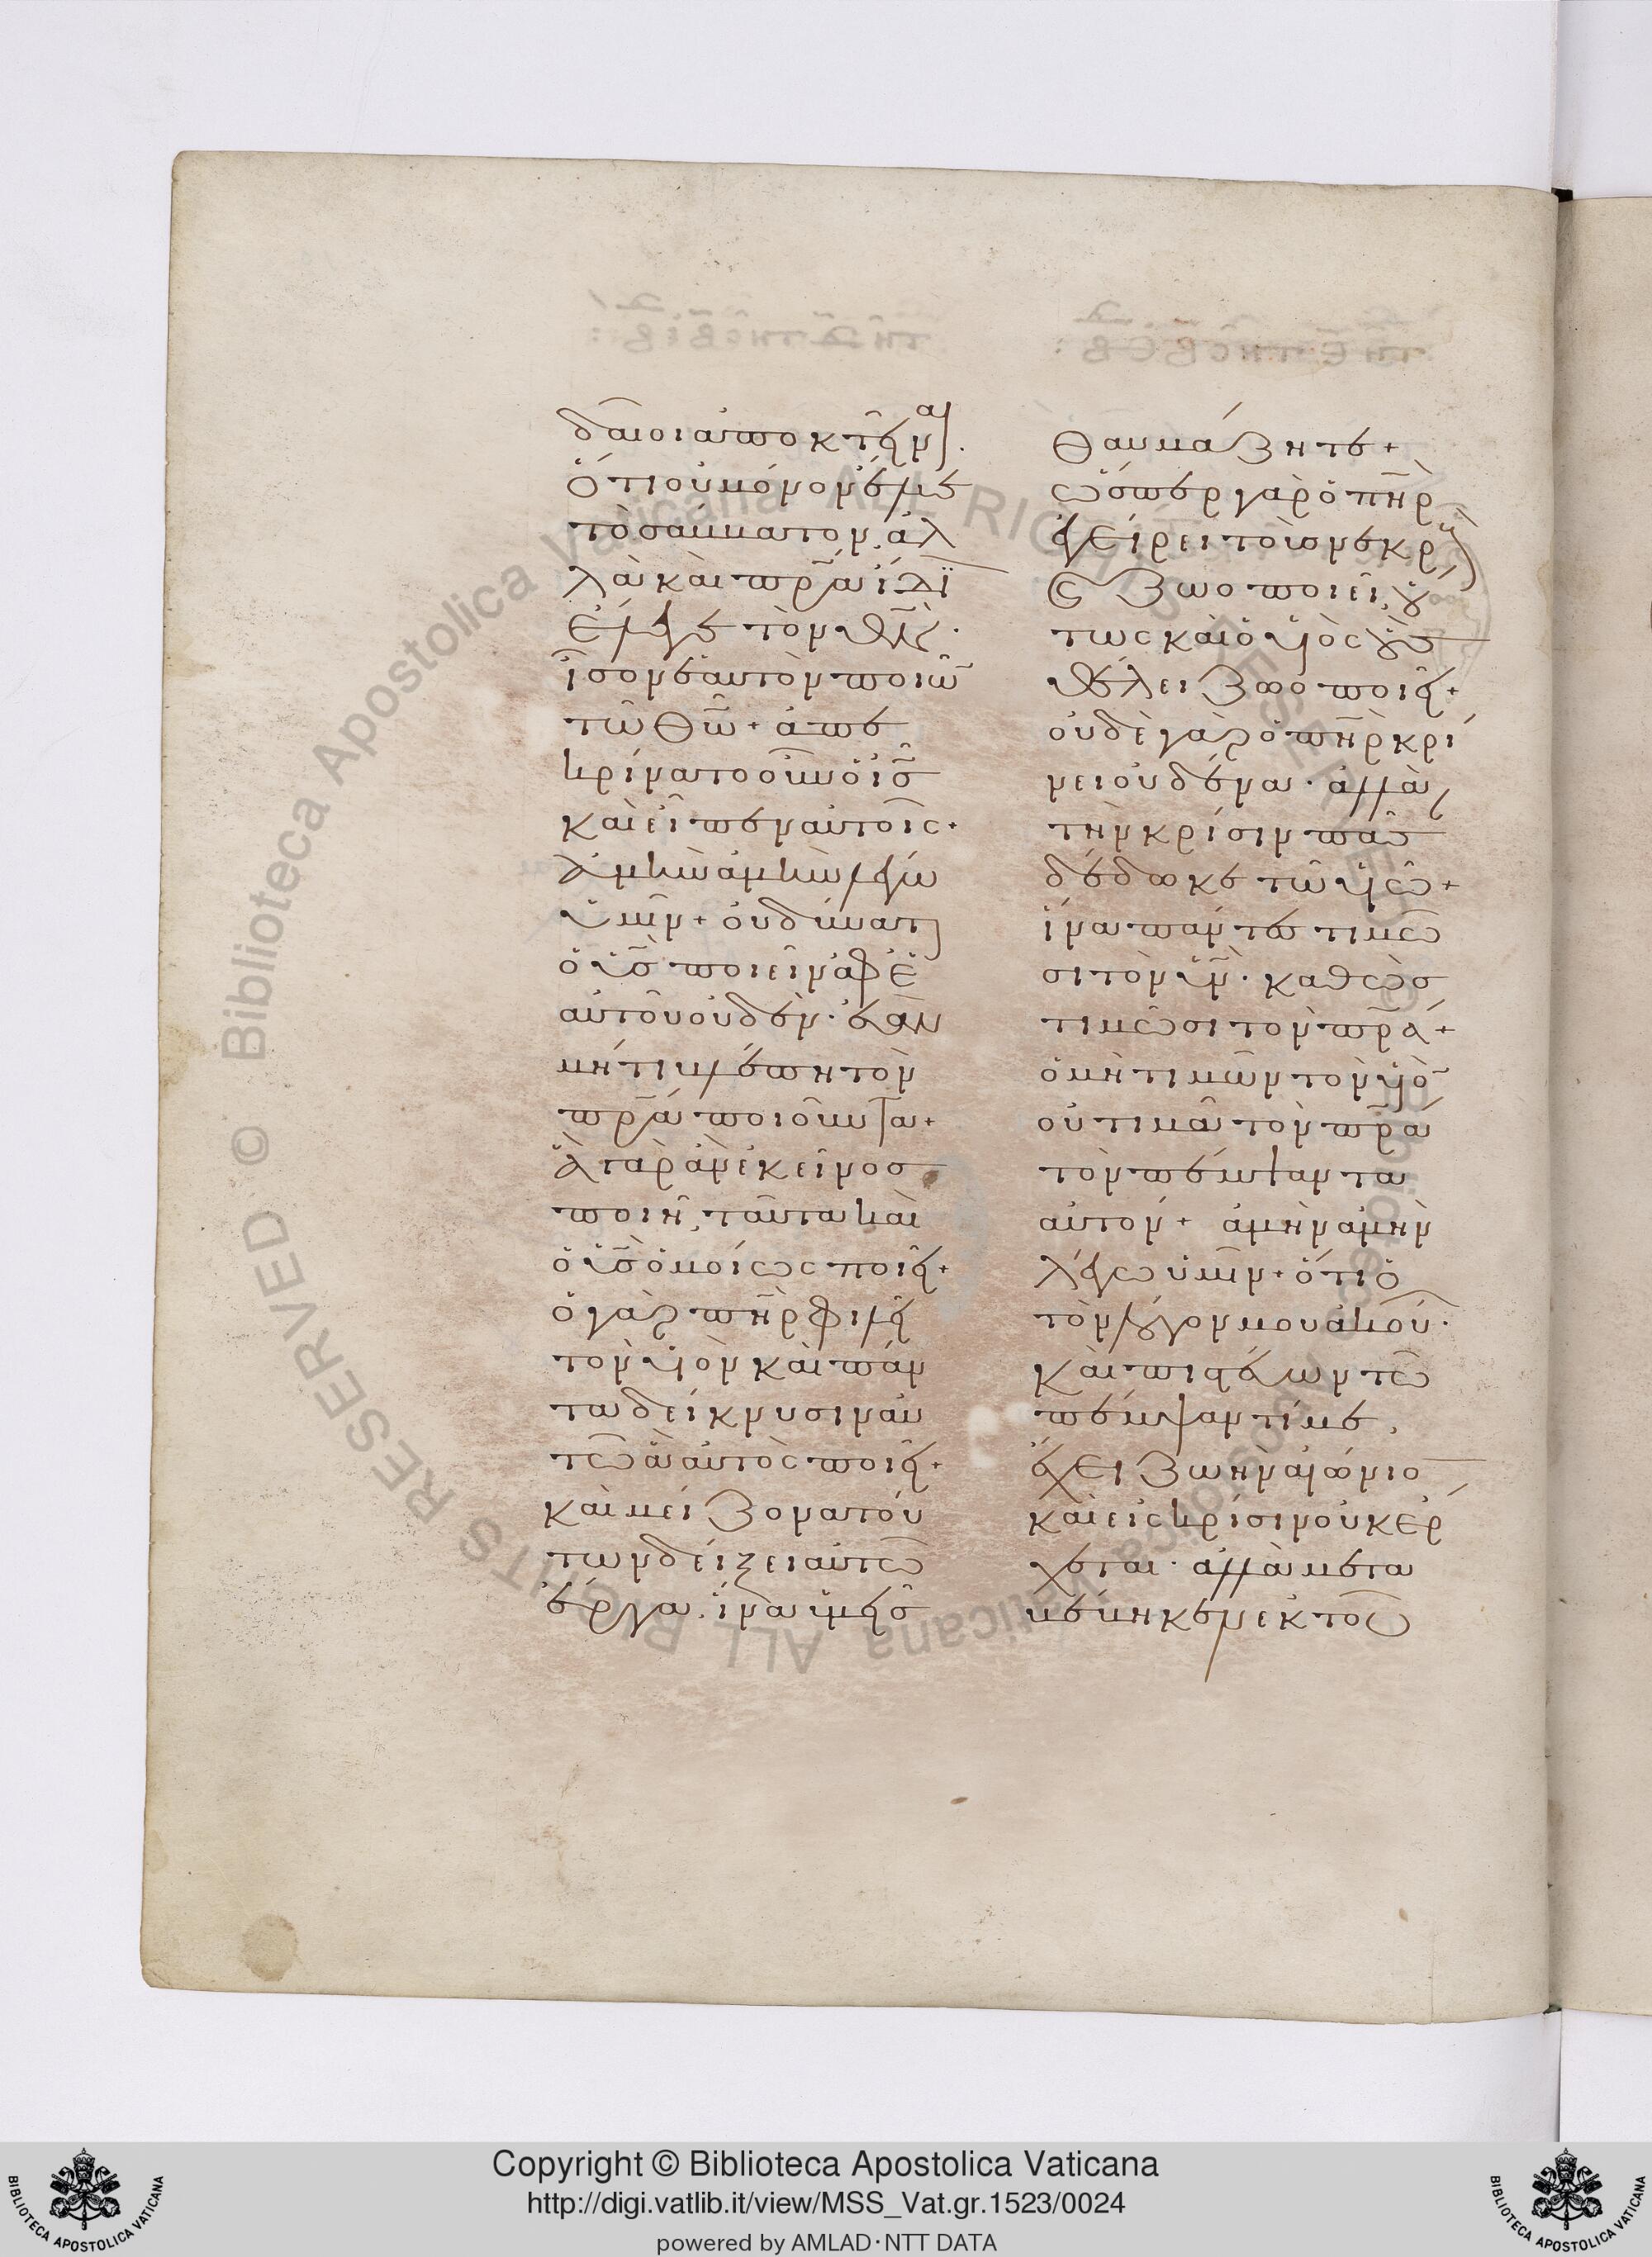 δαῖοι ἀποκτεῖναι.
Ὅτι οὐ μόνον ἔλυε
τὸ σάββατον, ἀλ
λὰ καὶ πρ̅α ἴδι
ἔλεγε τὸν θ̅ν.
ἴσον ἑαυτὸν ποιῶ
τῶ θ̅ω + ἀπε
κρίνατο οὖν ὁ ι̅ς
καὶ εἶπεν αὐτοῖς.
Ἀμὴν ἀμὴν λέγω
ὑμῖν + οὐ δύναται
ὁ υ̅ς ποιεῖν ἀφ ἑ
αυτοῦ οὐδέν. ἐὰν
μή τι βλέπη τὸν
πρ̅α ποιοῦντα +
Ἃ γὰρ ἂν ἐκεῖνος
ποιῆ, ταῦτα καὶ
ὁ υ̅ς ὁμοίως ποιεῖ +
ὁ γὰρ π̅ηρ φιλεῖ
τὸν υἱὸν καὶ πάν
τα δείκνυσιν αὐ
τῶ ἃ αὐτὸς ποιεῖ +
καὶ μείζονα τού
των δείξει αὐτῶ
ἔργα. ἵνα ὑμεῖς
θαυμάζητε +
ὥσπερ γὰρ ὁ π̅ηρ
ἐγείρει τοὺς νεκρούς
καὶ ζωοποιεῖ, οὕ
τως καὶ ὁ υἱὸς οὓς
θέλει ζωοποιεῖ +
οὐδὲ γὰρ ὁ π̅ηρ κρί
νει οὐδένα. ἀλλὰ
τὴν κρίσιν πᾶσ
δέδωκε τῶ υἱῶ +
ἵνα πάντες τιμῶ
σι τὸν υ̅ν. καθὼς
τιμῶσι τὸν πρ̅α +
ὁ μὴ τιμῶν τὸν υἱὸ
οὐ τιμᾶ τὸν πρ̅α
τὸν πέμψαντα
αὐτόν + ἀμὴν ἀμὴν
λέγω ὑμῖν + ὅτι ὁ
τὸν λόγον μου ἀκούων.
καὶ πιστεύων τῶ
πέμψαντί με,
ἔχει ζωὴν αἰώνιο
καὶ εἰς κρίσιν οὐκ ἔρ
χεται. ἀλλὰ μετα
βέβηκεν ἐκ τοῦ
Copyright © Biblioteca Apostolica Vaticana
http://digi.vatlib.it/view/MSS_Vat.gr.1523/0024
powered by AMLAD·NTT DATA
BIBLIOTECA APOSTOLICA VATICANA
BIBLIOTECA APOSTOLICA VATICANA
© Biblioteca Apostolica Vaticana ALL RIGHTS RESERVED © Biblioteca Apostolica Vaticana ALL RIGHTS RESERVED